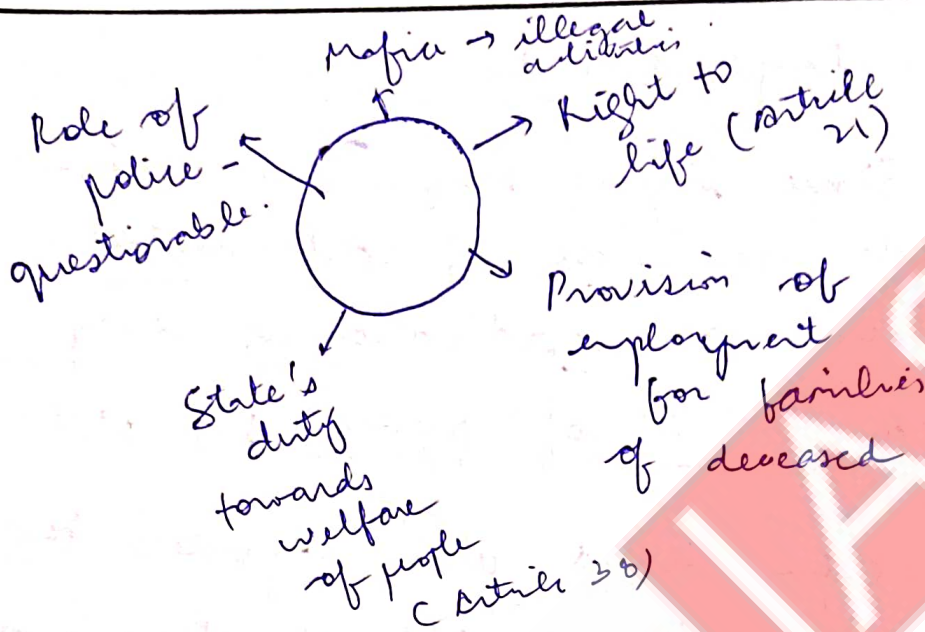 Mafia → illegal
activities.
Right to
life (Article
21)
Role of
police -
questionable.
Provision of
employment
for families
of deceased
State's
duty
towards
welfare
of people
(Article 38)
IAS